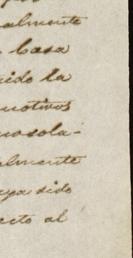 almente
Casa
ido la
motivos
nsola-
lmente
aya sido
ecto al